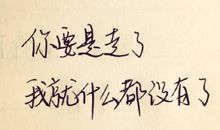 你要是走了
我就什么都没有了